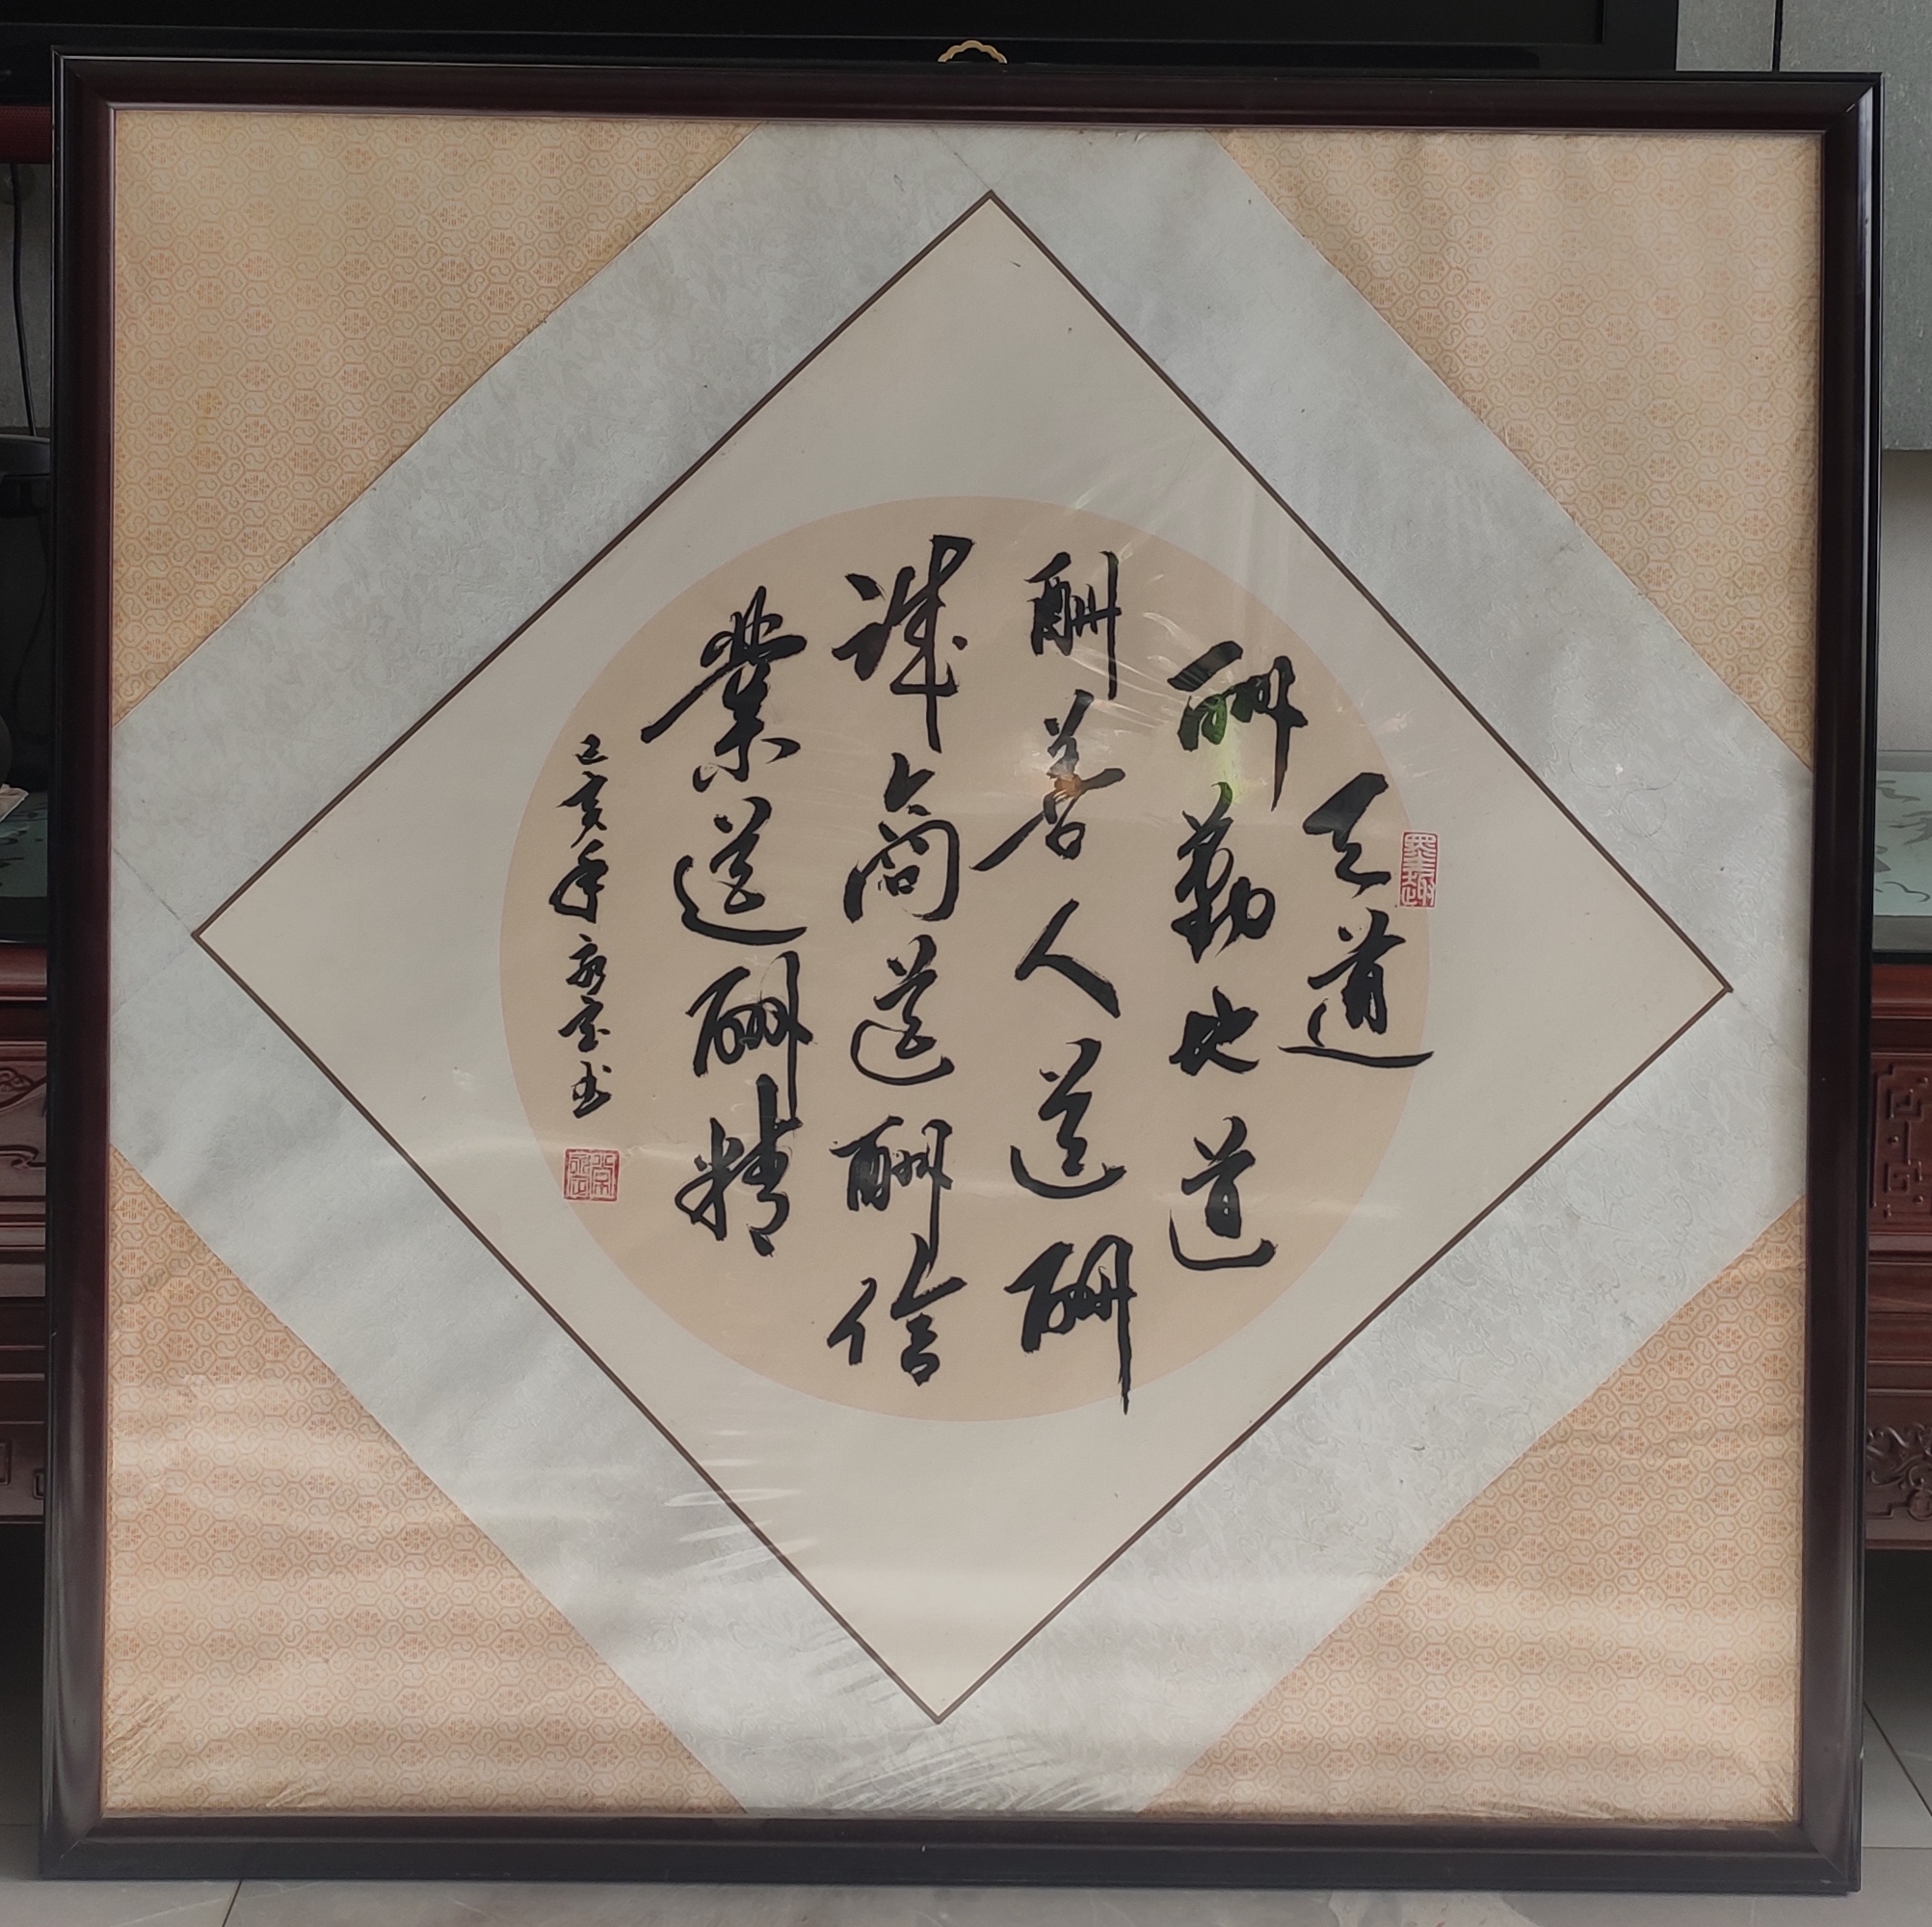 天道
酬勤地道
酬善人道酬
诚商道酬信
業道酬精
己亥年永宝书